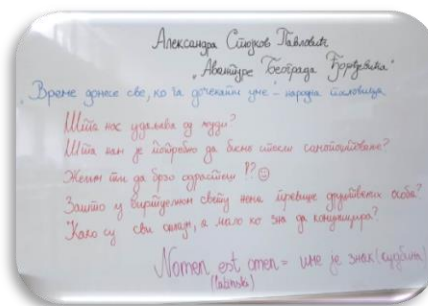 Александра Стојков Павловић
„Авантуре Београда Ђорђевића“
„Време донесе све, ко га дочекати уме“ - народна пословица
Шта нас удаљава од људи?
Шта нам је потребно да бисмо стекли самопоштовање?
Желиш ли да брзо одрастеш?
Зашто у виртуелном свету нема превише друштвених особа?
Како су сви онлајн, а мало ко зна да комуницира?
Nomen est omen = име је знак (судбина)
(latinski)